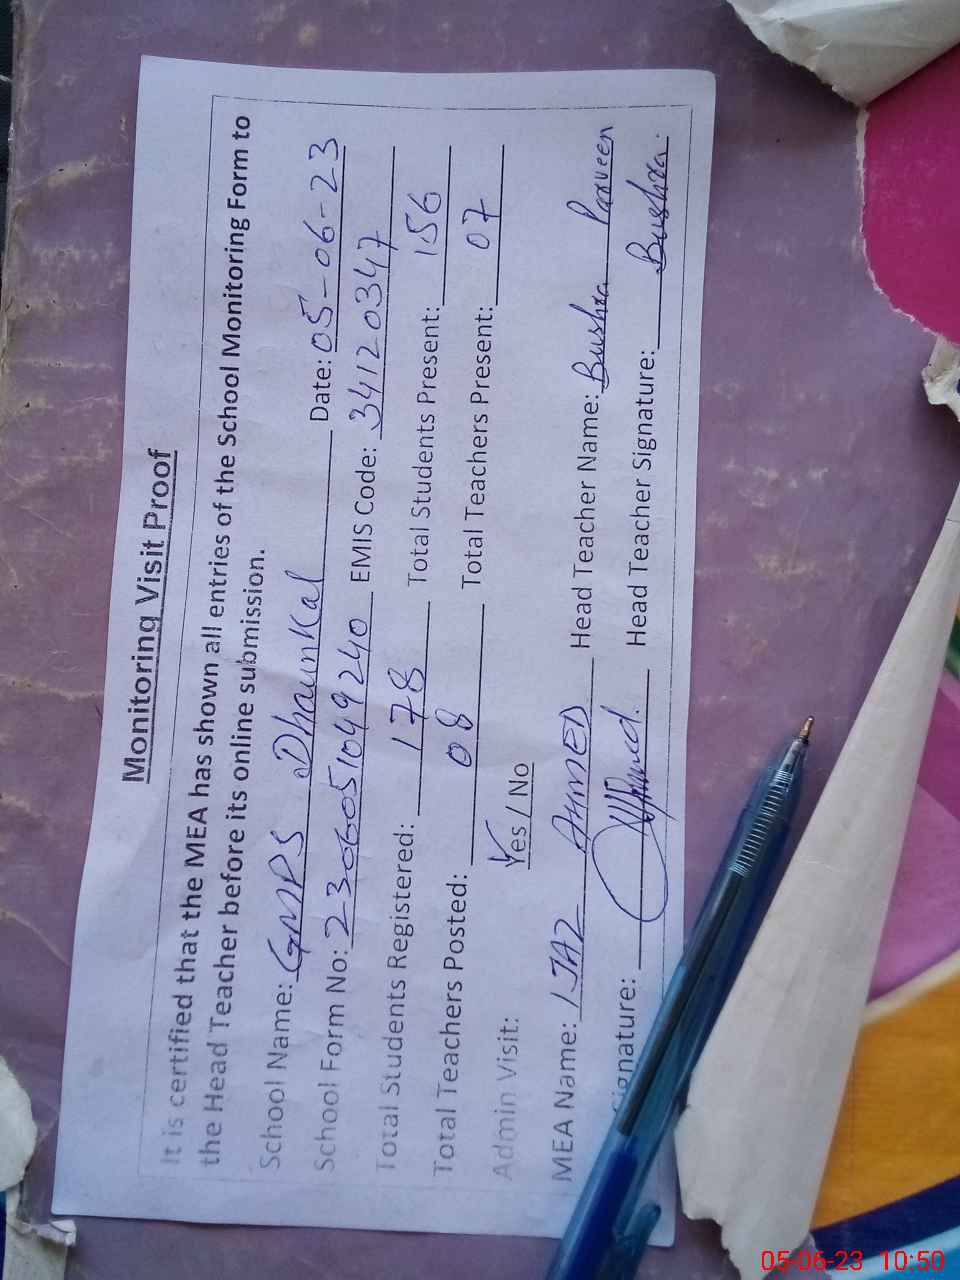 Monitoring Visit Proof
It is certified that the MEA has shown all entries of the School Monitoring Form to
the Head Teacher before its online submission.
School Name: GMPS Dhaunkal Date: 05-06-23
School Form No: 2306051049240 EMIS Code: 34120347
Total Students Registered: 178 Total Students Present: 156
Total Teachers Posted: 08 Total Teachers Present: 07
Admin Visit: Yes / No
MEA Name: IJAZ AHMED Head Teacher Name: Bushra Parveen
Signature: Head Teacher Signature: Bushra.
05-06-23 10:50